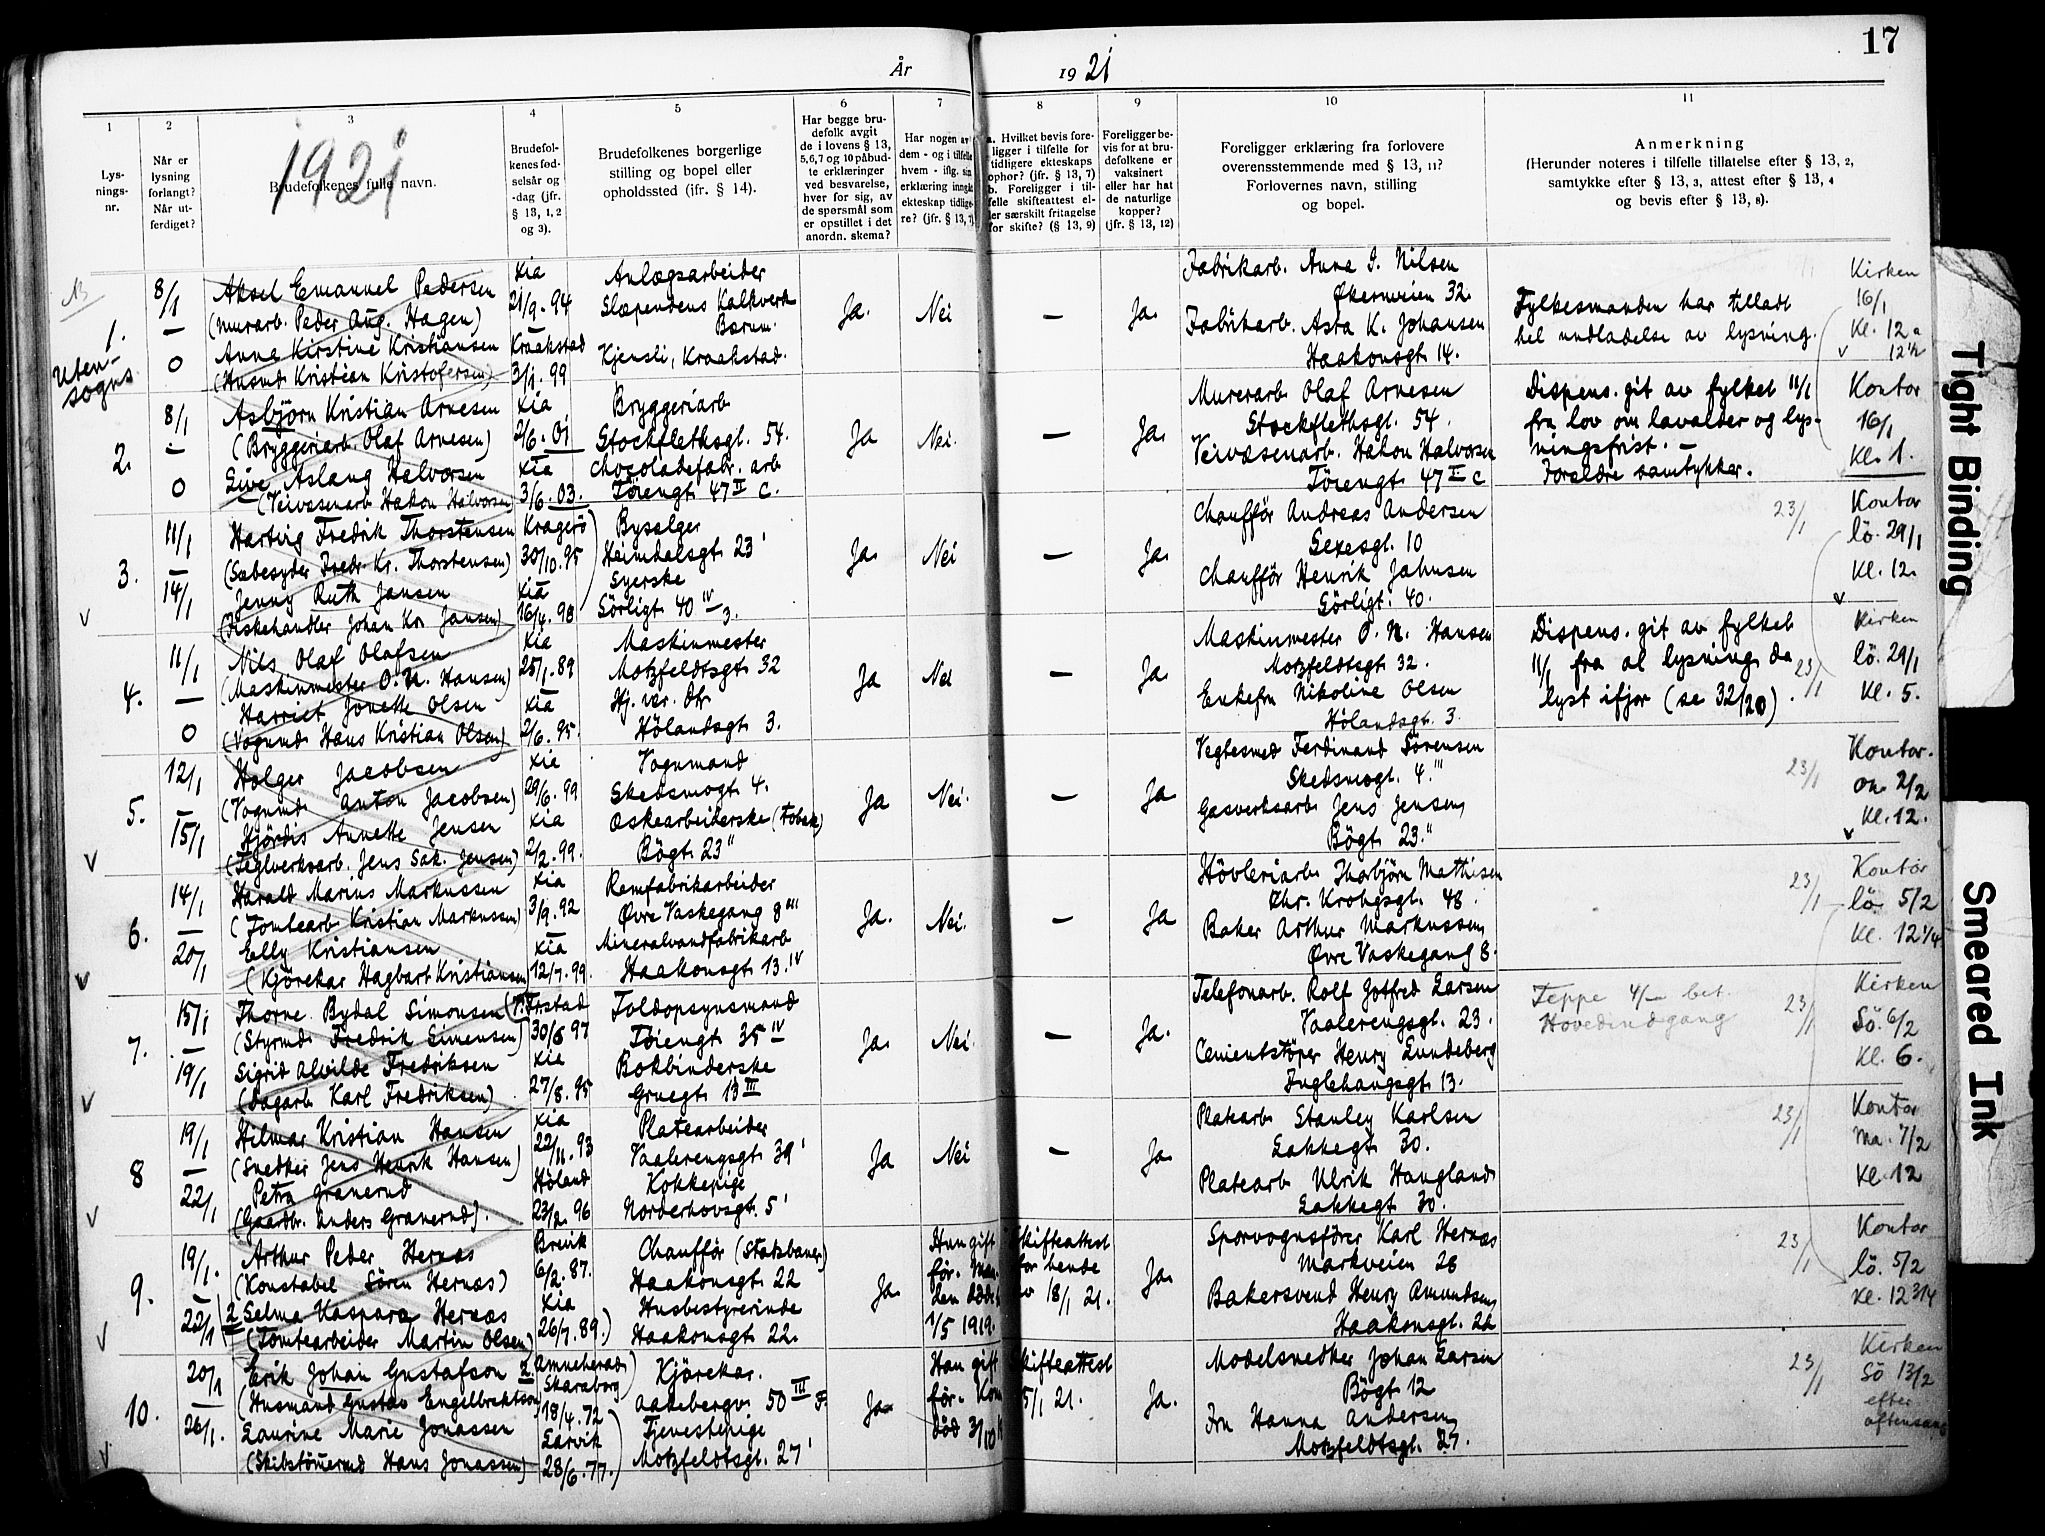 17
År 1921
1
2
3
4
5
6
7
8
9
10
11
Lys-
nings-
nr.
Når er
lysning
forlangt?
Når ut-
ferdiget?
1921
Brudefolkenes fulle navn.
Brudefol-
kenes fød-
selsår og
-dag (jfr.
§ 13, 1, 2
og 3).
Brudefolkenes borgerlige
stilling og bopel eller
opholdssted (ifr. § 14).
Har begge bru-
defolk avgit
de i lovens § 13,
5,6,7 og 10 påbud-
te erklæringer
ved besvarelse,
hver for sig, av
de spørsmål som
er opstillet i det
anordn. skema?
Har nogen av
dem - og i tilfelle
hvem - iflg. sin
erklæring inngått
ekteskap tidlige-
re? (jfr. § 13, 7)
a. Hvilket bevis fore-
ligger i tilfelle for
tidligere ekteskaps
ophør? (jfr. § 13, 7)
b. Foreligger i til-
felle skifteattest el-
ler særskilt fritagelse
for skifte? (§ 13, 9)
Foreligger be-
vis for at bru-
defolkene er
vaksinert
eller har hat
de naturlige
kopper?
(jfr. § 13, 12)
Foreligger erklæring fra forlovere
overensstemmende med § 13, 11?
Forlovernes navn, stilling
og bopel.
Anmerkning
(Herunder noteres i tilfelle tillatelse efter § 13, 2,
samtykke efter § 13, 3, attest efter § 13, 4
og bevis efter § 13, 8).
1.
Uten-
sogns
8/1
—
0
Aksel Emanuel Pedersen
(murarb. Peder Aug. Hagen)
Anna Kirstine Kristiansen
(Husmd. Kristian Kristofersen)
Kia
21/9. 94
Kraakstad
3/1. 99
Anlægsarbeider
Slæpendens Kalkverk
Bærum.
Kjensli, Kraakstad.
Ja.
Nei
—
Ja.
Fabrikarb. Anna I. Nilsen
Økernveien 32.
Fabrikarb. Asta K. Johansen
Haakonsgt. 14.
Fylkesmanden har tilladt
hel undladelse av lysning.
Kirken
16/1
Kl. 12 a
12 1/2
2.
8/1
—
0
Asbjörn Kristian Arnesen
(Bryggeriarb. Olaf Arnesen)
Live Aslaug Halvorsen
(Veivæsenarb. Hakon Halvorsen)
Kia
2/6. 01
Kia
3/6. 03.
Bryggeriarb
Stockflethsgt. 54.
Chocoladefabr. arb
Töiengt. 47 II C.
Ja
Nei.
—
Ja.
Murerarb Olaf Arnesen
Stockflethsgt. 54.
Veivæsenarb. Hakon Halvorsen
Töiengt 47 II C
Dispens. git av fylket 11/1
fra lov om lavalder og lys-
ningsfrist. —
Forældre samtykker.
Kontor
16/1
Kl. 1.
3.
11/1
—
14/1
Hartvig Fredrik Thorstensen
(Sæbesyder Fredr. Kr. Thorstensen)
Jenny Ruth Jansen
(Fiskehandler Johan Kr. Jansen)
Kragerö
30/10. 95
Kia
16/4. 98
Bysælger
Heimdalsgt. 23 '
Syerske
Sörligt. 40 IV 3.
Ja.
Nei
—
Ja.
Chaufför Andreas Andersen
Sexesgt. 10
Chaufför Henrik Jahnsen
Sörligt. 40.
23/1
Kontor
lö. 29/1
Kl. 12.
4.
11/1
—
0
Nils Olaf Olafsen
(Maskinmester O. N. Hansen)
Harriet Jonette Olsen
(Vognmd. Hans Kristian Olsen)
Kia
25/1. 89
Kia
2/6. 95.
Maskinmester
Motzfeldtsgt 32
Hj. vær. dtr
Hölandsgt 3.
Ja
Nei
—
Ja.
Maskinmester O. N. Hansen
Motzfeldtsgt 32.
Enkefru Nikoline Olsen
Hölandsgt. 3.
Dispens. git av fylket
11/1 fra al lysning da
lyst ifjor (se 32/20).
23/1
Kirken
lö. 29/1
Kl. 5.
5.
12/1
—
15/1
Holger Jacobsen
(Vognmd. Anton Jacobsen)
Hjördis Annette Jensen
(Teglverksarb. Jens Sak. Jensen)
Kia
29/6. 99
Kia
2/2. 99.
Vognmand
Skedsmogt. 4.
Æskearbeiderske (Tobak)
Bögt. 23 "
Ja
Nei.
—
Ja
Vegtesmed Ferdinand Sørensen
Skedsmogt. 4. '"
Gasverksarb Jens Jensen
Bögt 23. "
23/1
Kontor.
on. 2/2
Kl. 12.
6.
14/1
—
20/1
Harald Marius Markussen
(Tomtearb Kristian Markussen)
Elly Kristiansen
(Kjörekar Hagbart Kristiansen)
Kia
3/9. 92
Kia
12/7. 99.
Remfabrikarbeider
Øvre Vaskegang 8 '"
Mineralvandfabrikarb
Haakonsgt. 13. IV
Ja.
Nei.
—
Ja
Hövleriarb Thorbjörn Mathisen
Chr. Krohgsgt. 48.
Baker Arthur Markussen
Øvre Vaskegang 8.
23/1
Kontor
lö 5/2
Kl. 12 1/4
7.
15/1
—
19/1
Thorne Bydal Simonsen
(Styrmd. Fredrik Simonsen)
Sigrid Alvilde Fredriksen
(Dagarb Karl Fredriksen)
Fr.stad
30/6 97
Kia
27/8. 95
Toldopsynsmand
Töiengt 35 IV
Bokbinderske
Gruegt. 13 III
Ja.
Nei.
—
Ja.
Telefonarb. Rolf Gotfred Larsen
Vaalerengsgt. 23.
Cementstöper Henry Lundeberg
Fuglehaugsgt. 13.
Teppe 4/— bet.
Hovedindgang
23/1
Kirken
Sö. 6/2
Kl. 6.
8
19/1
—
22/1
Hilmar Kristian Hansen
(Snedker Jens Henrik Hansen)
Petra Granerud
(Gaardbr. Anders Granerud).
Kia
22/11. 93
Höland
23/2. 96
Platearbeider
Vaalerengsgt. 39 '
Kokkepige
Norderhovsgt. 5 '
Ja
Nei
—
Ja.
Platearb Stanley Karlsen
Lakkegt 30.
Platearb Ulrik Haugland
Lakkegt 30.
23/1
Kontor
Ma. 7/2
Kl. 12
9.
19/1.
—
22/1
Arthur Peder Hernæs
(Konstabel Sören Hernæs)
2 Selma Kaspara Hernæs
(Tomtearbeider Martin Olsen)
Brevik
6/2. 87.
Kia
26/7. 89.)
Chaufför (Statsbaner)
Haakonsgt. 22
Husbestyrerinde
Haakonsgt. 22.
Ja.
Hun gift
før. Man-
den död
1/5 1919.
Skifteattest
for hende
av 18/1 21.
Ja.
Sporvognsfører Karl Hernæs
Markveien 28
Bakersvend Henry Amundsen
Haakonsgt. 22
23/1
Kontor
lö. 5/2
Kl. 12 3/4
10.
20/1
—
26/1.
Erik Johan Gustafson 2.
(Husmand Gustav Engelbrektson)
Laurine Marie Jonassen
(Skibstömmermd Hans Jonassen)
Amneherad
Skaraborg
18/4. 72
Larvik
28/6. 77.)
Kjörekar.
Aakebergv. 50 III F.
Tjenestepige
Motzfeldtsgt. 27 '
Ja
Han gift
før. Kon
död 3/10
Skifteattest
5/1 21.
Ja.
Modelsnedker Johan Larsen
Bögt 12
Fru Hanna Andersen
Motzfeldtsgt. 27.
23/1
Kirken
Sö 13/2
efter
aftensang
Tight Binding
Smeared Ink